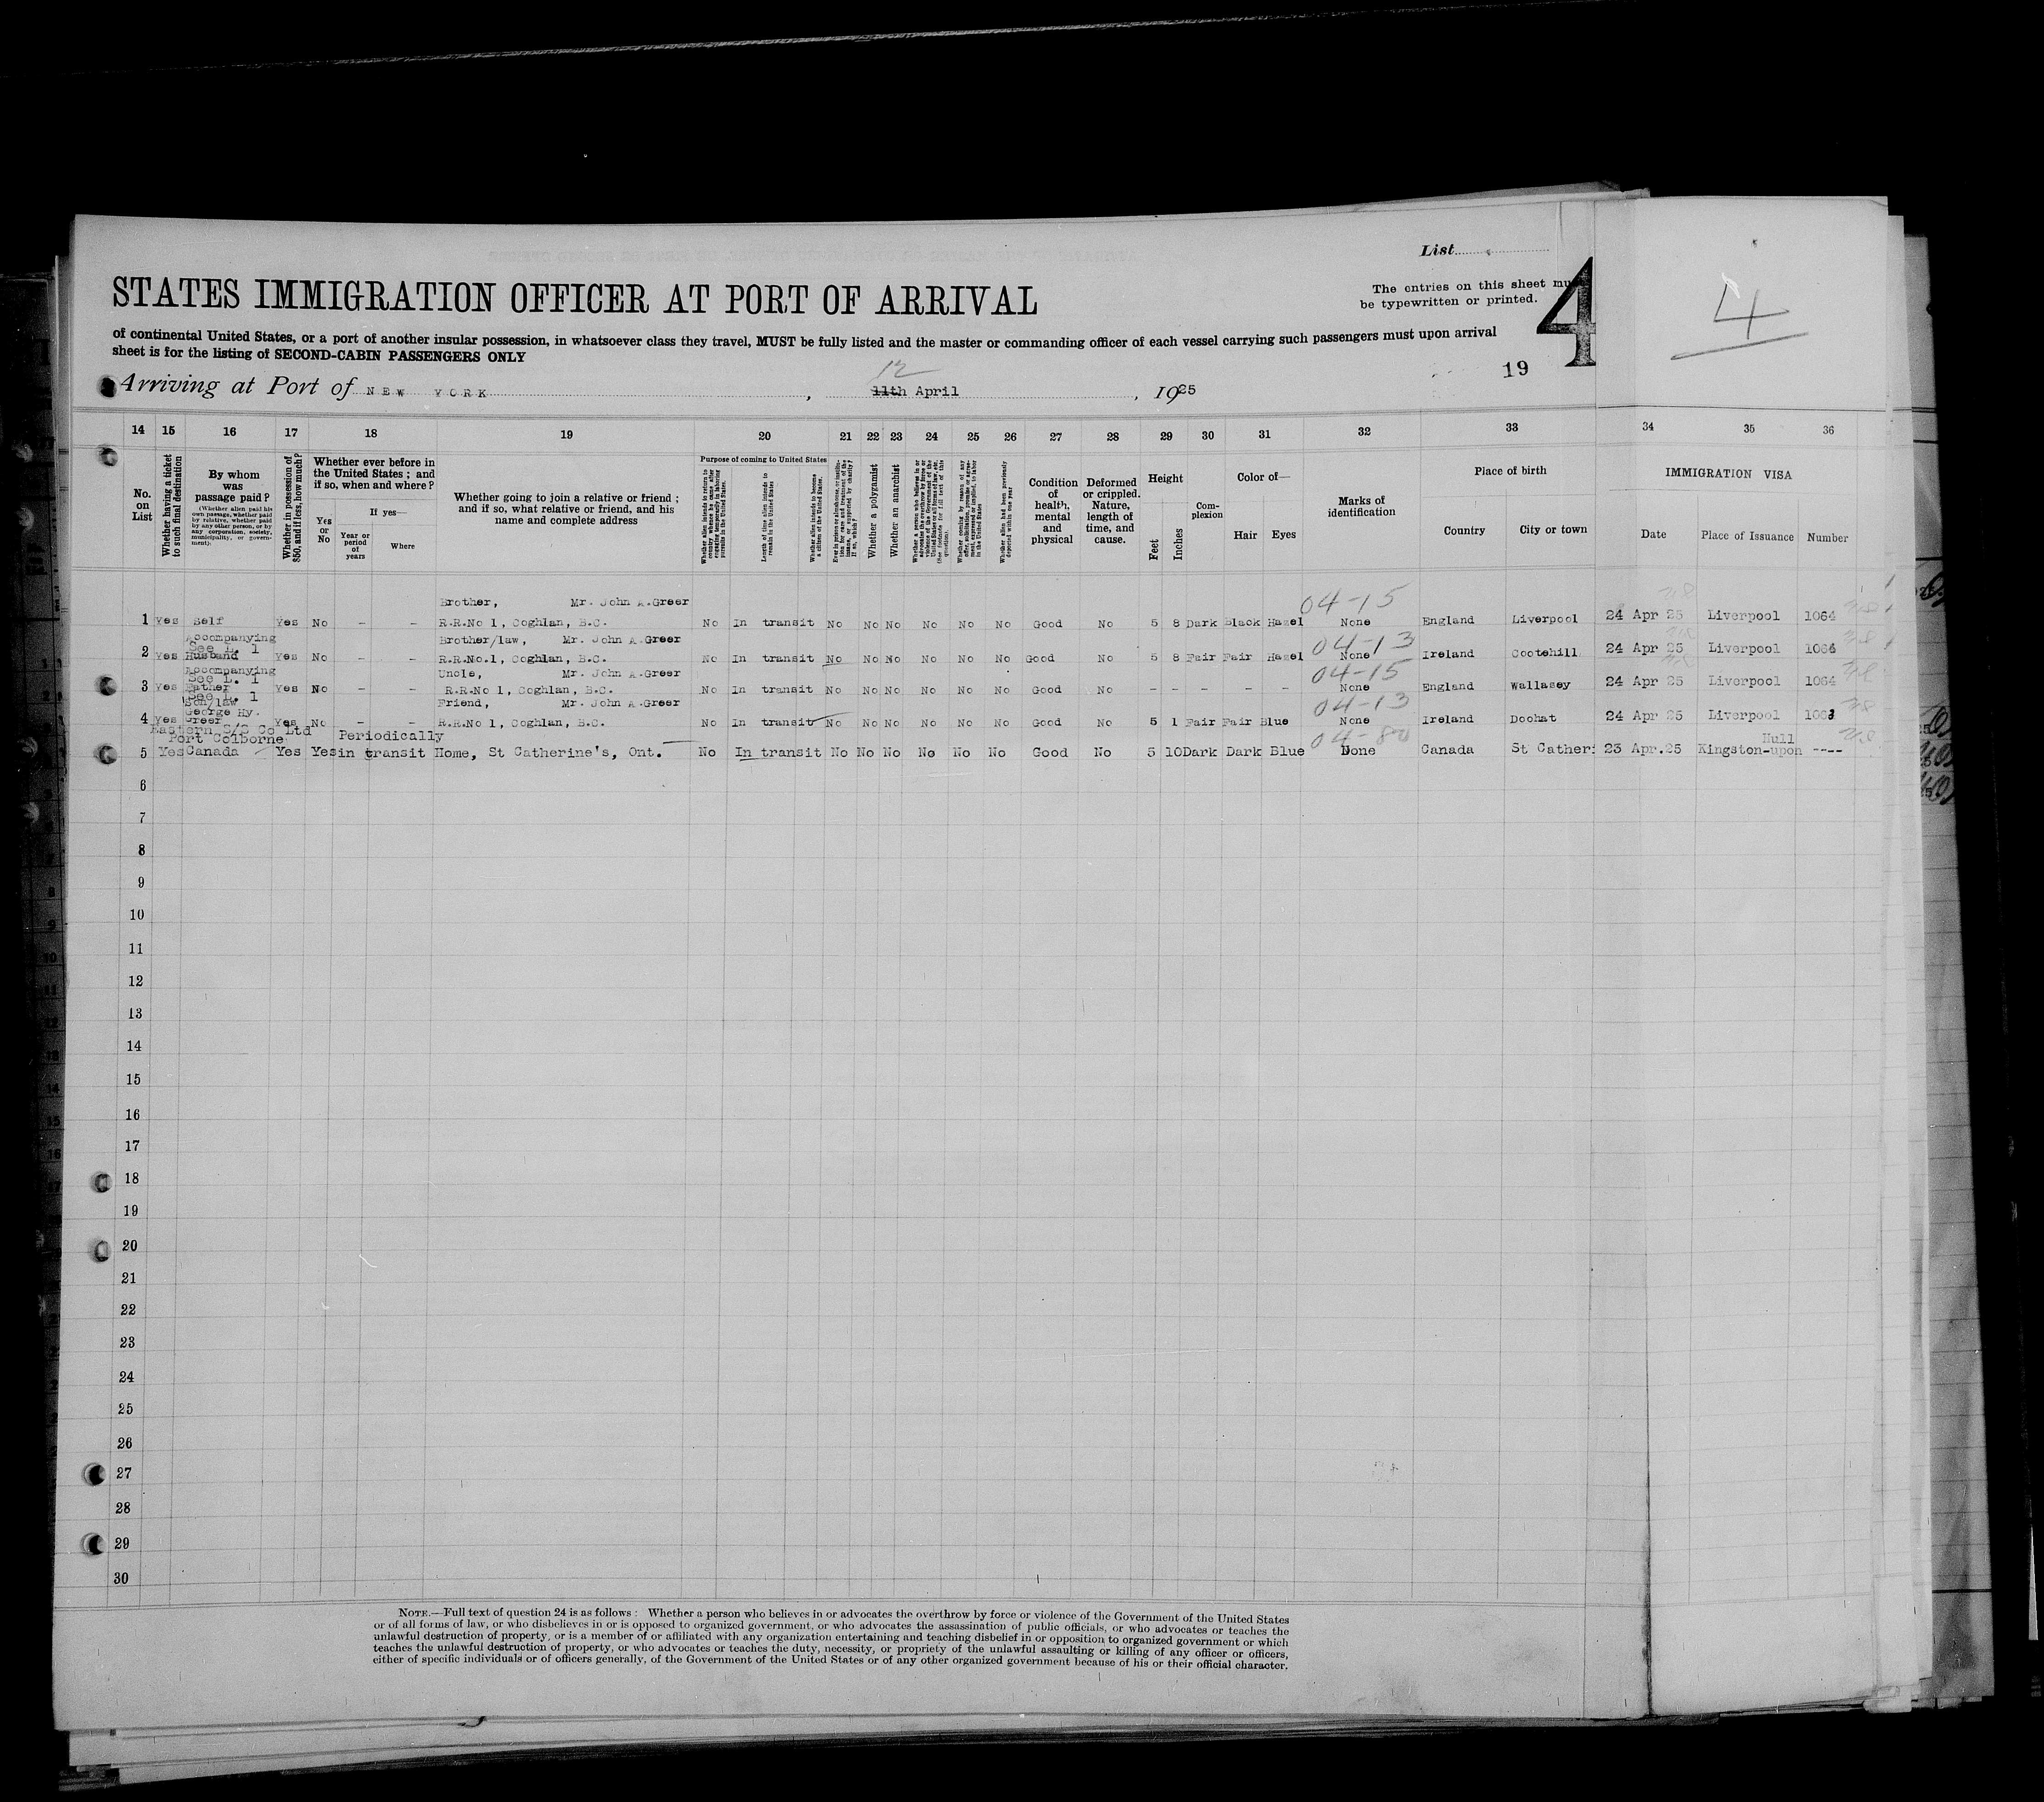 List
STATES IMMIGRATION OFFICER AT PORT OF ARRIVAL
The entries on this sheet mu
be typewritten or printed.
4
4
of continental United States, or a port of another insular possession, in whatsoever class they travel, MUST be fully listed and the master or commanding officer of each vessel carrying such passengers must upon arrival
sheet is for the listing of SECOND-CABIN PASSENGERS ONLY
19
12
Arriving at Port of NEW YORK, 11th April, 1925
14 15 16 17 18 19 20 21 22 23 24 25 26 27 28 29 30 31 32 33 34 35 36
No. on List
Whether having a ticket to such final destination
By whom was passage paid?
(Whether alien paid his own passage, whether paid by relative, whether paid by any other person, or by any corporation, society, municipality, or government).
Whether in possession of $50, and if less, how much?
Whether ever before in the United States; and if so, when and where?
Yes or No
If yes—
Year or period of years
Where
Whether going to join a relative or friend; and if so, what relative or friend, and his name and complete address
Purpose of coming to United States
Whether alien intends to return to country whence he came after engaging temporarily in laboring pursuits in the United States.
Length of time alien intends to remain in the United States
Whether alien intends to become a citizen of the United States.
Ever in prison or almshouse, or institution for care and treatment of the insane, or supported by charity? If so, which?
Whether a polygamist
Whether an anarchist
Whether coming by reason of any offer, solicitation, promise or agreement, expressed or implied, to labor in the United States
Whether alien had been previously deported within one year
Condition of health, mental and physical
Deformed or crippled. Nature, length of time, and cause.
Height
Feet
Inches
Complexion
Color of—
Hair
Eyes
Marks of identification
Place of birth
Country
City or town
IMMIGRATION VISA
Date
Place of Issuance
Number
Brother, Mr. John A.Greer 04-15
1 Yes Self Yes No - - R.R.No 1, Coghlan, B.C. No In transit No No No No No No Good No 5 8 Dark Black Hazel None England Liverpool 24 Apr 25 Liverpool 1064
Accompanying
See L. 1 Brother/law, Mr. John A.Greer 04-13
2 Yes Husband Yes No - - R.R.No.1, Coghlan, B.C. No In transit No No No No No No Good No 5 8 Fair Fair Hazel None Ireland Cootehill 24 Apr 25 Liverpool 1064
Accompanying
See L. 1 Uncle, Mr. John A.Greer 04-15
3 Yes Father Yes No - - R.R.No 1, Coghlan, B.C. No In transit No No No No No No Good No - - - - - None England Wallasey 24 Apr 25 Liverpool 1064
See L. 1
Son/law Friend, Mr. John A.Greer 04-13
George Hy.
4 Yes Greer Yes No - - R.R.No 1, Coghlan, B.C. No In transit No No No No No No Good No 5 1 Fair Fair Blue None Ireland Doohat 24 Apr 25 Liverpool 1063
Eastern S/S Co Ltd
Port Colborne Periodically 04- Hull
5 Yes Canada Yes Yes in transit Home, St Catherine's, Ont. No In transit No No No No No No Good No 5 10 Dark Dark Blue None Canada St Catheri 23 Apr.25 Kingston-upon ----
6
7
8
9
10
11
12
13
14
15
16
17
18
19
20
21
22
23
24
25
26
27
28
29
30
NOTE.—Full text of question 24 is as follows: Whether a person who believes in or advocates the overthrow by force or violence of the Government of the United States
or of all forms of law, or who disbelieves in or is opposed to organized government, or who advocates the assassination of public officials, or who advocates or teaches the
unlawful destruction of property, or is a member of or affiliated with any organization entertaining and teaching disbelief in or opposition to organized government or which
teaches the unlawful destruction of property, or who advocates or teaches the duty, necessity, or propriety of the unlawful assaulting or killing of any officer or officers,
either of specific individuals or of officers generally, of the Government of the United States or of any other organized government because of his or their official character.